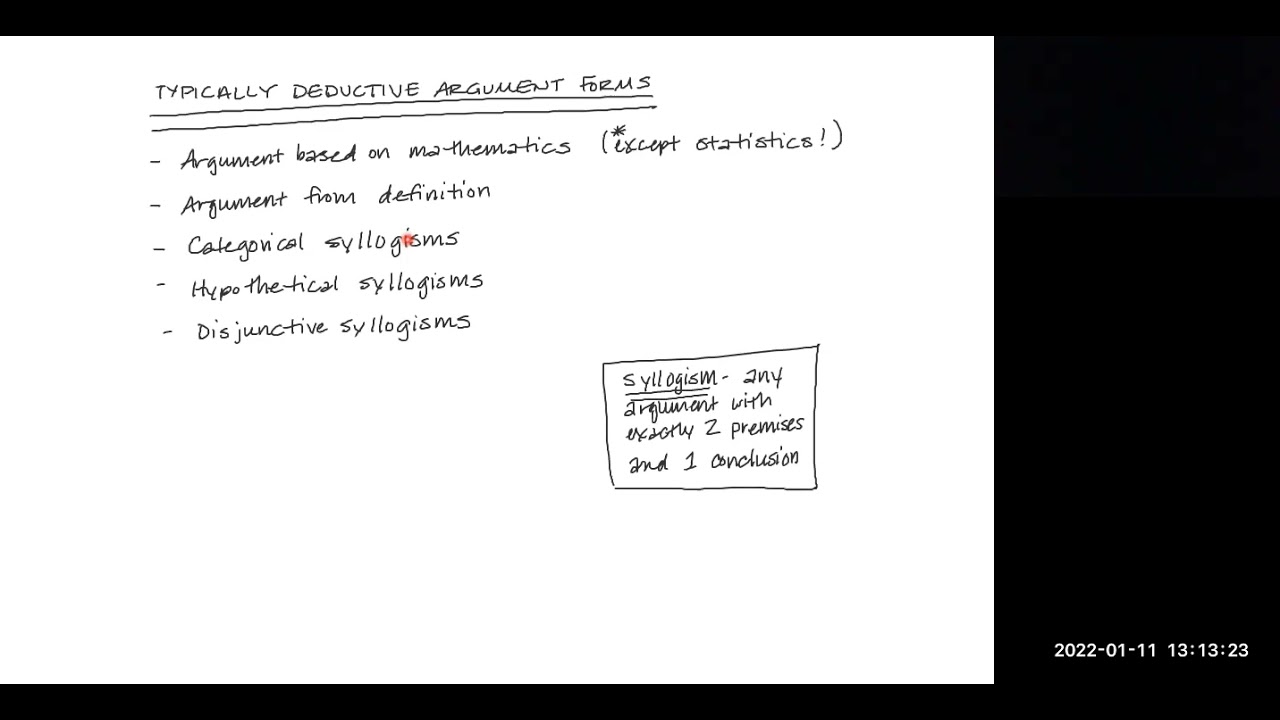 TYPICALLY DEDUCTIVE ARGUMENT FORMS
- Argument based on mathematics (*except statistics!)
- Argument from definition
- Categorical syllogisms
- Hypothetical syllogisms
- Disjunctive syllogisms
syllogism - any
argument with
exactly 2 premises
and 1 conclusion
2022-01-11 13:13:23